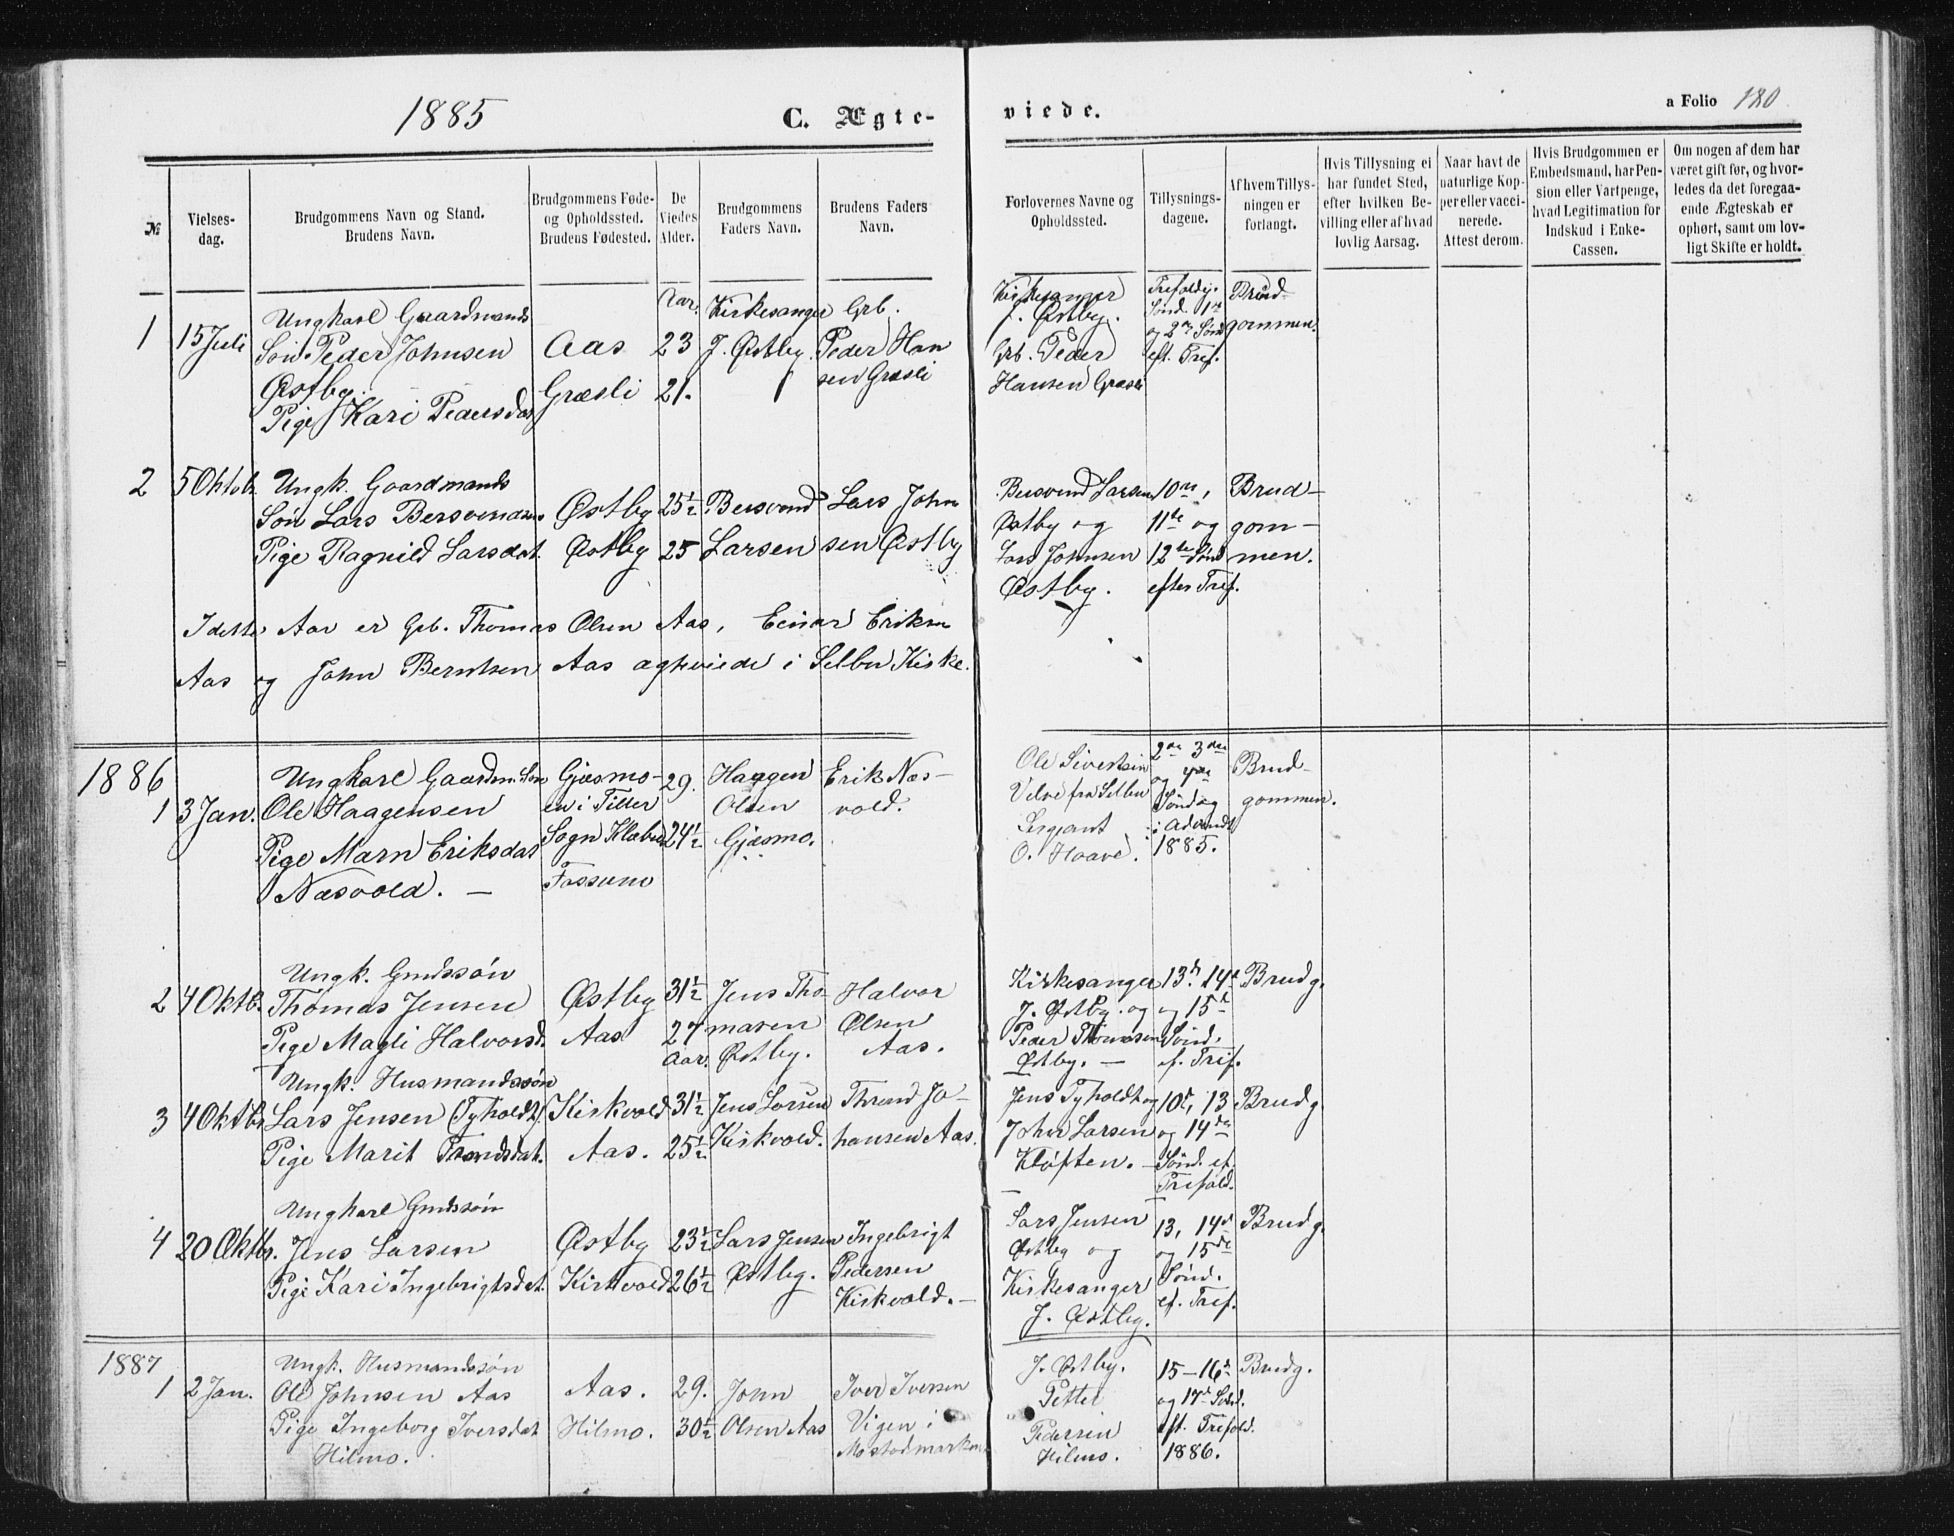 1885
C. Ægte-
viede.
a Folio 180
№
Vielses-
dag.
Brudgommens Navn og Stand.
Brudens Navn.
Brudgommens Føde-
og Opholdssted.
Brudens Fødested.
De
Viedes
Alder.
Brudgommens
Faders Navn.
Brudens Faders
Navn.
Forlovernes Navne og
Opholdssted.
Tillysnings-
dagene.
Af hvem Tillys-
ningen er
forlangt.
Hvis Tillysning ei
har fundet Sted,
efter hvilken Be-
villing eller af hvad
lovlig Aarsag.
Naar havt de
naturlige Kop-
per eller vacci-
nerede.
Attest derom.
Hvis Brudgommen er
Embedsmand, har Pen-
sion eller Vartpenge,
hvad Legitimation for
Indskud i Enke-
Cassen.
Om nogen af dem har
været gift før, og hvor-
ledes da det foregaa-
ende Ægteskab er
ophørt, samt om lov-
ligt Skifte er holdt.
1
15 Juli
Ungkarl Gaardmands
Søn Peder Johnsen
Østby.
Pige Kari Pedersdat
Aas
Græsli
Aar.
23
21.
Kirkesanger
J. Østby.
Grb.
Peder Han
sen Græsli
Kirkesanger
J. Østby.
Grb. Peder
Hansen Græsli
Trefoldigh.
Sønd. 1ste
og 2den Sønd
eft. Tref.
Brud-
gommen.
2
5 Oktob.
Ungk. Gaardmands
Søn Lars Bersvendsen
Pige Ragnild Larsdat.
Østby
Østby
25½
25
Bersvend
Larsen
Lars John
sen Østby
Bersvend Larsen
Østby og
Lars Johnsen
Østby.
10de,
11te og
12te Sønd
efter Tref.
Brud-
gom-
men.
I dette Aar er Grb. Thomas Olsen Aas, Einar Eriksen
Aas og John Berntsen Aas ægteviede i Selbu Kirke.
1886
1
3 Jan.
Ungkarl Gaardm. Søn
Ole Haagensen
Pige Marn Eriksdat
Næsvold. –
Gjæsmo-
en i Tiller
Sogn Klæbu
Fossum
29.
24½
Haagen
Olsen
Gjæsmo.
Erik Næs-
vold.
Ole Sivertsen
Velve fra Selbu
Sergeant
O. Haave.
2de 3die
og 4de
Søndag
i Advendt
1885.
Brud-
gommen.
2
4 Oktb.
Ungk. Gmdssøn
Thomas Jensen
Pige Magli Halvorsd.
Østby
Aas
31½
27
Aar.
Jens Tho-
masen
Østby.
Halvor
Olsen
Aas.
Kirkesanger
J. Østby. og
Peder Thomasen
Østby. –
13de 14de
og 15de
Sønd.
ef. Tref.
Brudg.
3
4 Oktbr
Ungk. Husmandssøn
Lars Jensen (Tyholdt).
Pige Marit Trondsdat.
Kirkvold
Aas.
31½
25½
Jens Larsen
Kirkvold.
Thrond Jo-
hansen Aas.
Jens Tyholdt og
John Larsen
Kløften. –
10de, 13
og 14de
Sønd. ef.
Trefold.
Brudg
4
20 Oktbr.
Ungkarl Gmdssøn
Jens Larsen
Pige Kari Ingebrigtsdat.
Østby
Kirkvold
23½
26½
Lars Jensen
Østby.
Ingebrigt
Pedersen
Kirkvold. –
Lars Jensen
Østby og
Kirkesanger
J. Østby.
13, 14de
og 15de
Sønd.
ef. Tref.
Brudg
1887
1
2 Jan.
Ungk. Husmandssøn
Ole Johnsen Aas
Pige Ingeborg Iversdat
Hilmo.
Aas.
Hilmo.
29.
30½
John
Olsen Aas
Iver Iversen
Vigen i
Mostadmarken
J. Østby.
Petter
Pedersen
Hilmo.
15-16de
og 17de Sønd.
eft. Trefold.
1886.
Brudg.